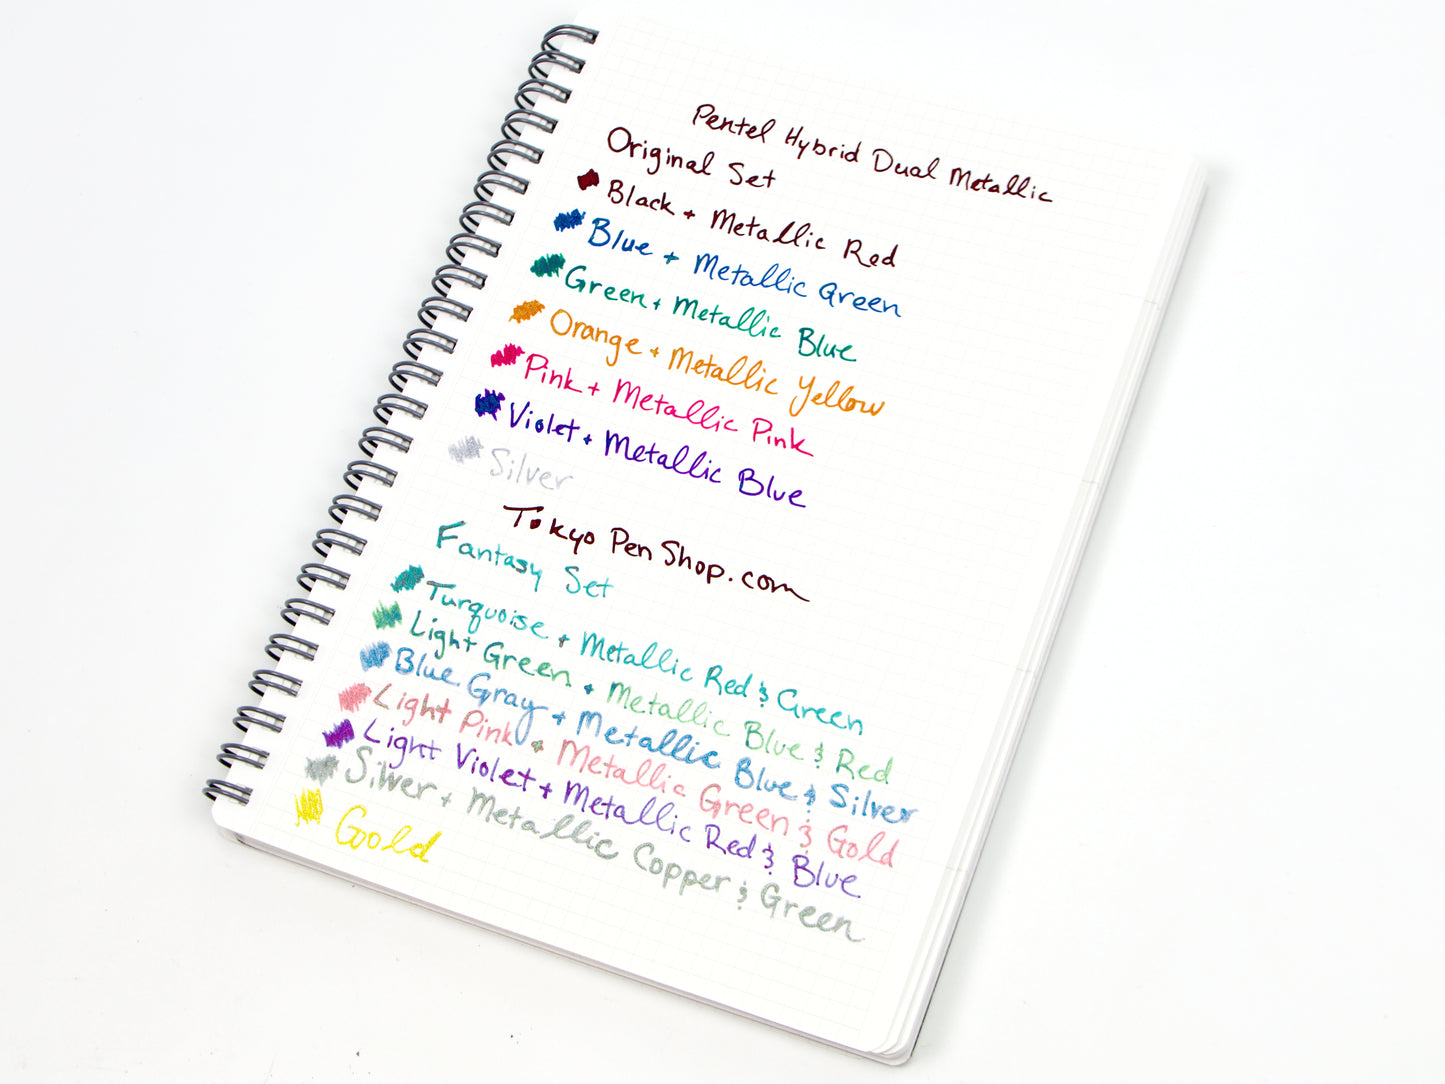 Pentel Hybrid Dual Metallic
Original Set
Black + Metallic Red
Blue + Metallic Green
Green + Metallic Blue
Orange + Metallic Yellow
Pink + Metallic Pink
Violet + Metallic Blue
Silver
Tokyo Pen Shop.com
Fantasy Set
Turquoise + Metallic Red & Green
Light Green + Metallic Blue & Red
Blue Gray + Metallic Blue & Silver
Light Pink + Metallic Green & Gold
Light Violet + Metallic Red & Blue
Silver + Metallic Copper & Green
Gold